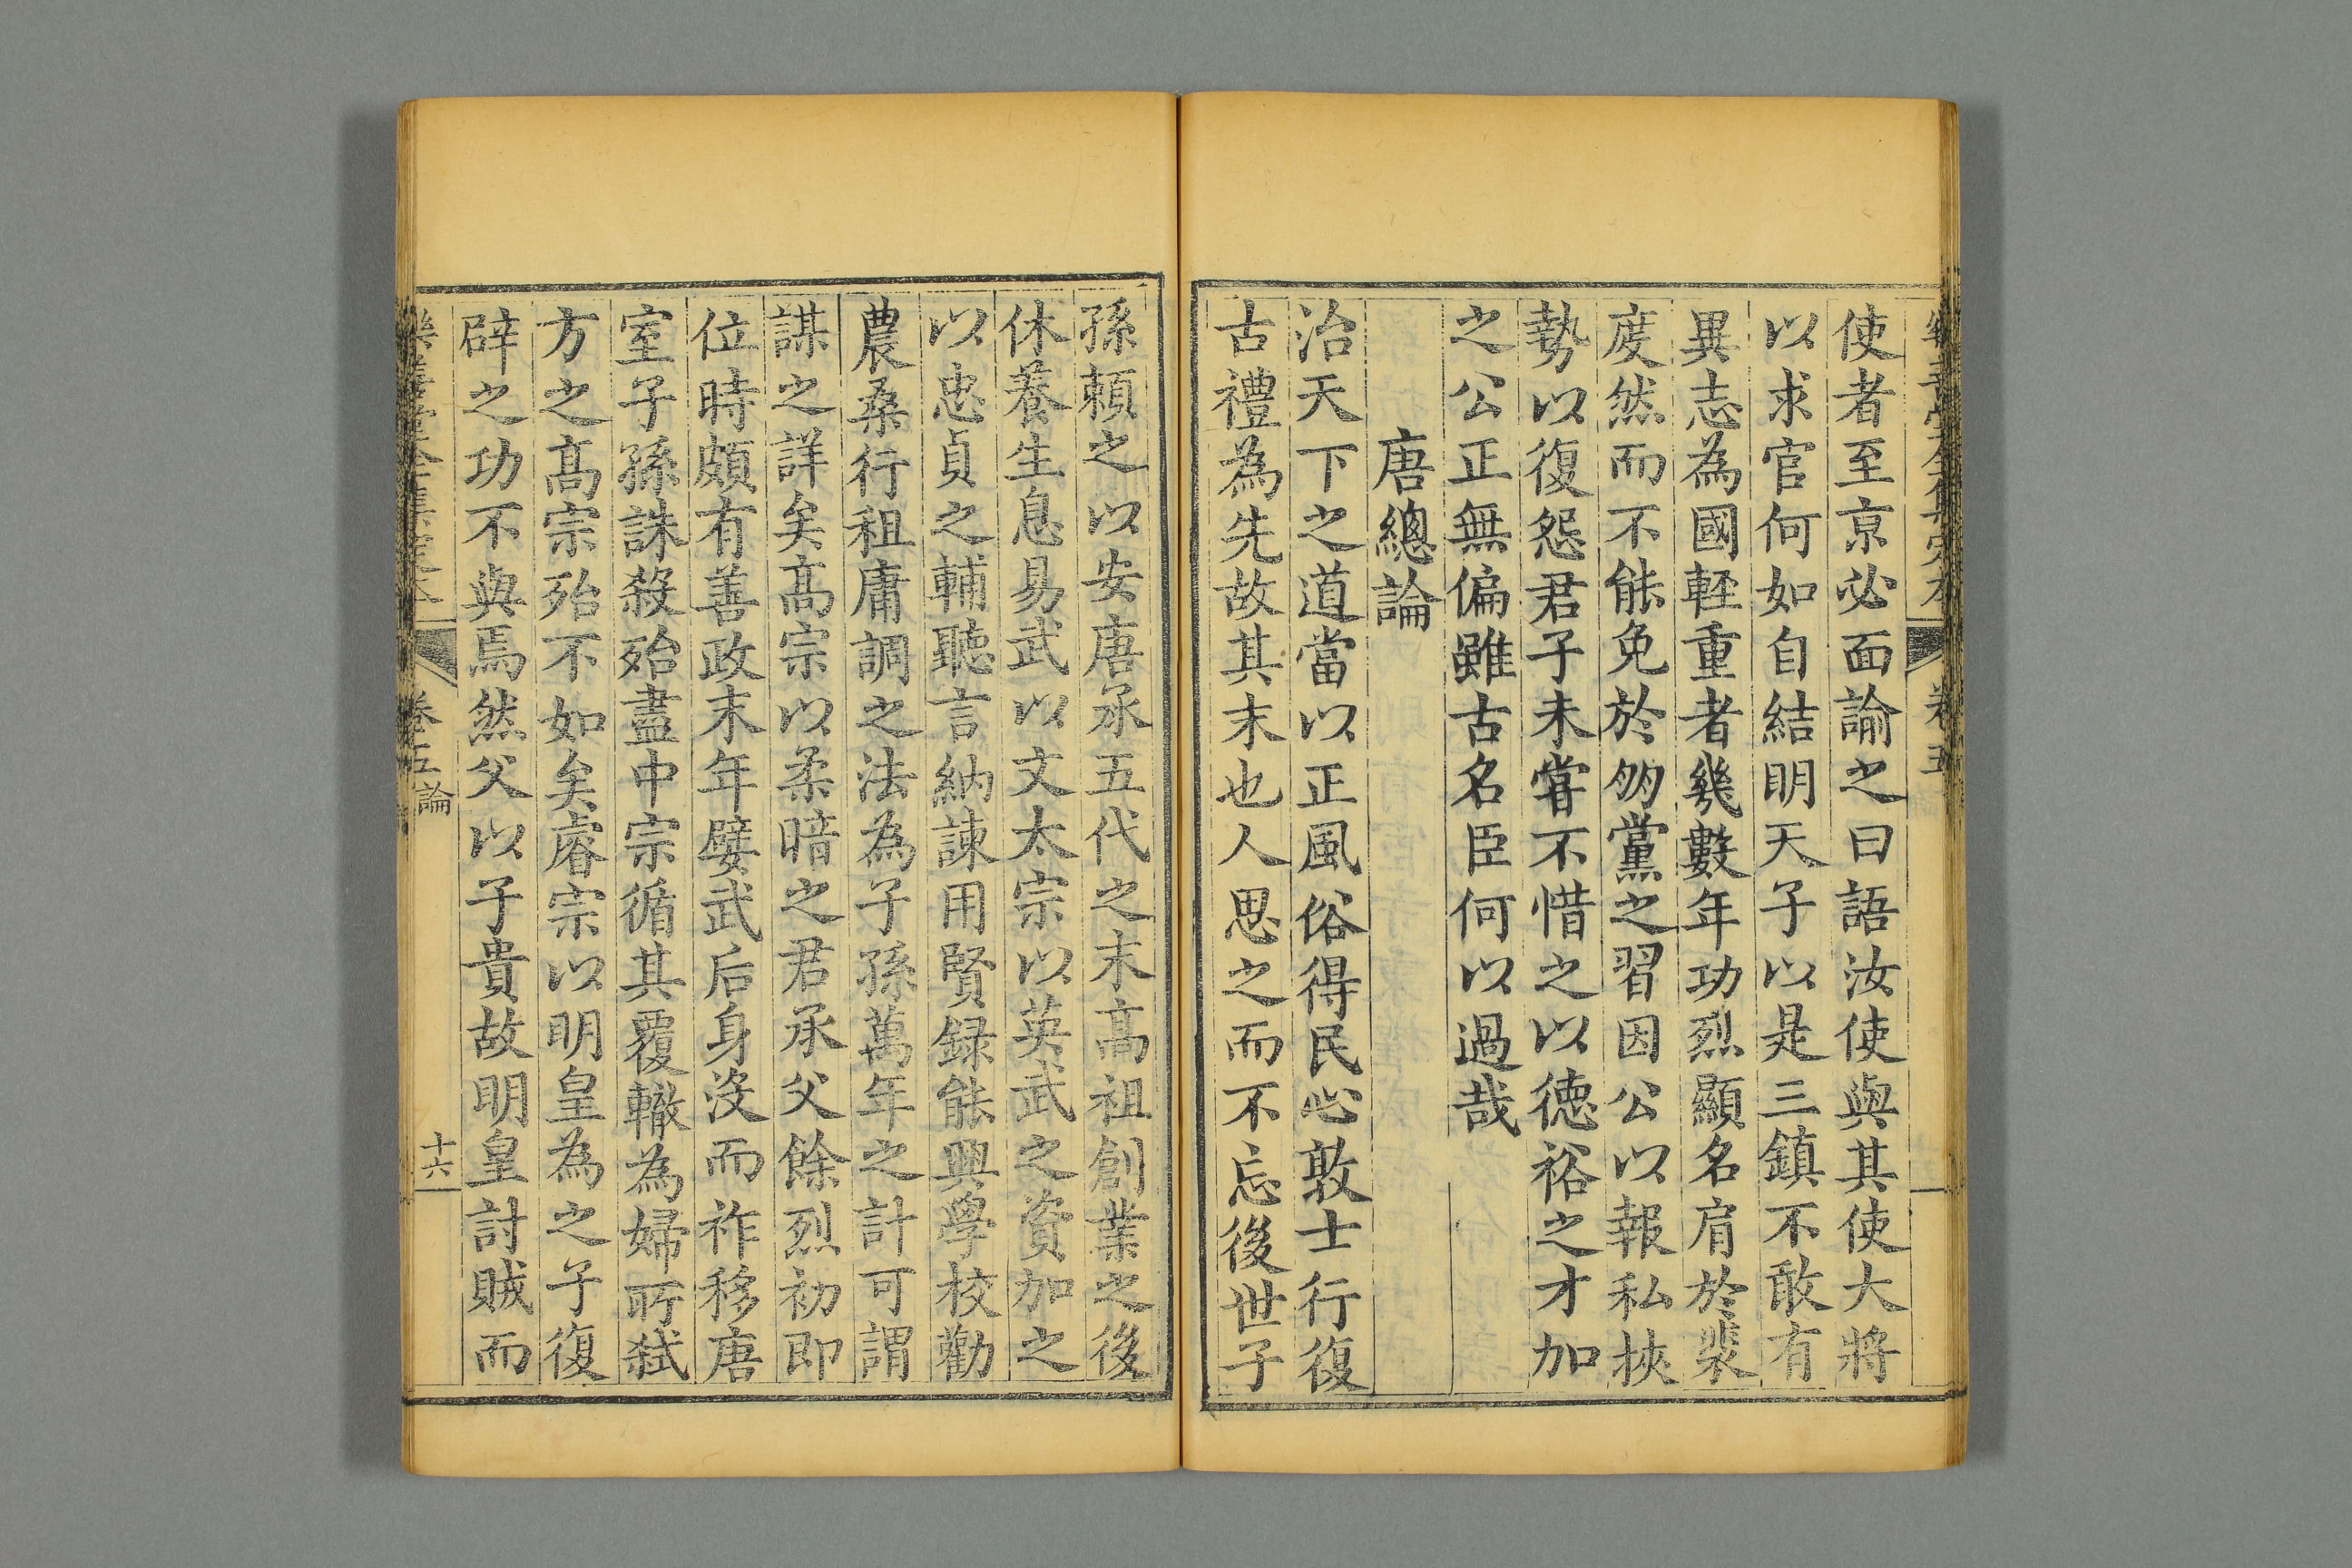 樂善堂全集定本
卷五
使者至京必面諭之曰語汝使與其使大將
以求官何如自結明天子以是三鎮不敢有
異志為國輕重者幾數年功烈顯名肩於裴
度然而不能免於朋黨之習因公以報私挾
勢以復怨君子未嘗不惜之以德裕之才加
之公正無偏雖古名臣何以過哉
唐總論
治天下之道當以正風俗得民心敦士行復
古禮為先故其末也人思之而不忘後世子
孫賴之以安唐承五代之末高祖創業之後
休養生息易武以文太宗以英武之資加之
以忠貞之輔聽言納諫用賢録能興學校勸
農桑行租庸調之法為子孫萬年之計可謂
謀之詳矣高宗以柔暗之君承父餘烈初即
位時頗有善政末年嬖武后身沒而祚移唐
室子孫誅殺殆盡中宗循其覆轍為婦所弒
方之高宗殆不如矣睿宗以明皇為之子復
辟之功不與焉然父以子貴故明皇討賊而
樂善堂全集定本
卷五 論
十六